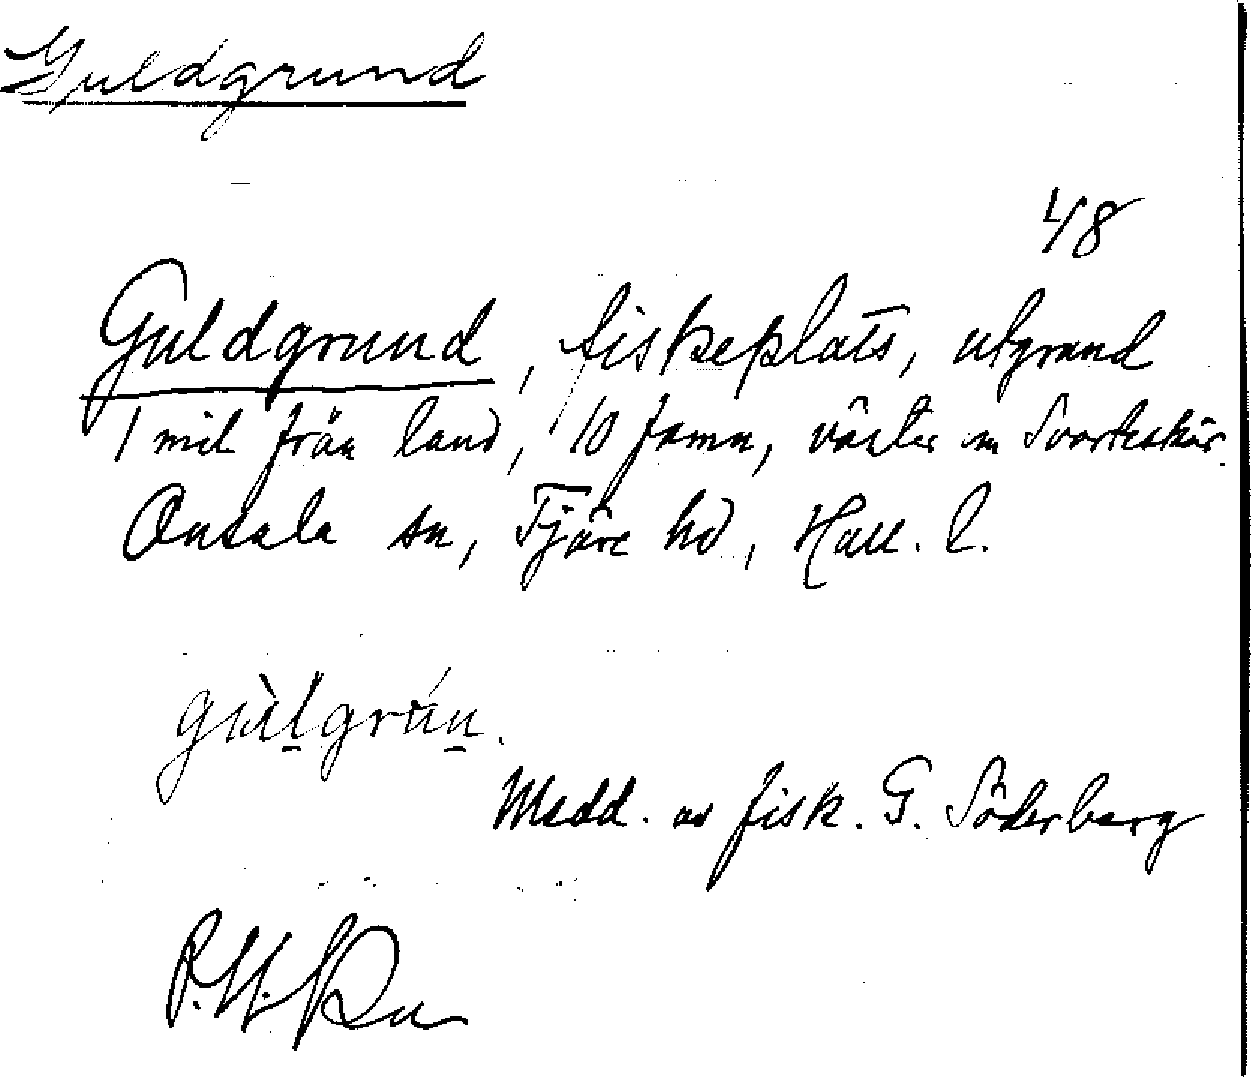 Guldgrund
48
Guldgrund, fiskeplats, utgrund
1 mil från land, 10 famn, väster om Svarteskär.
Onsala sn, Fjäre hd, Hall. l.
gu̇̀l̲grún̲.
Medd. av fisk. G. Söderberg